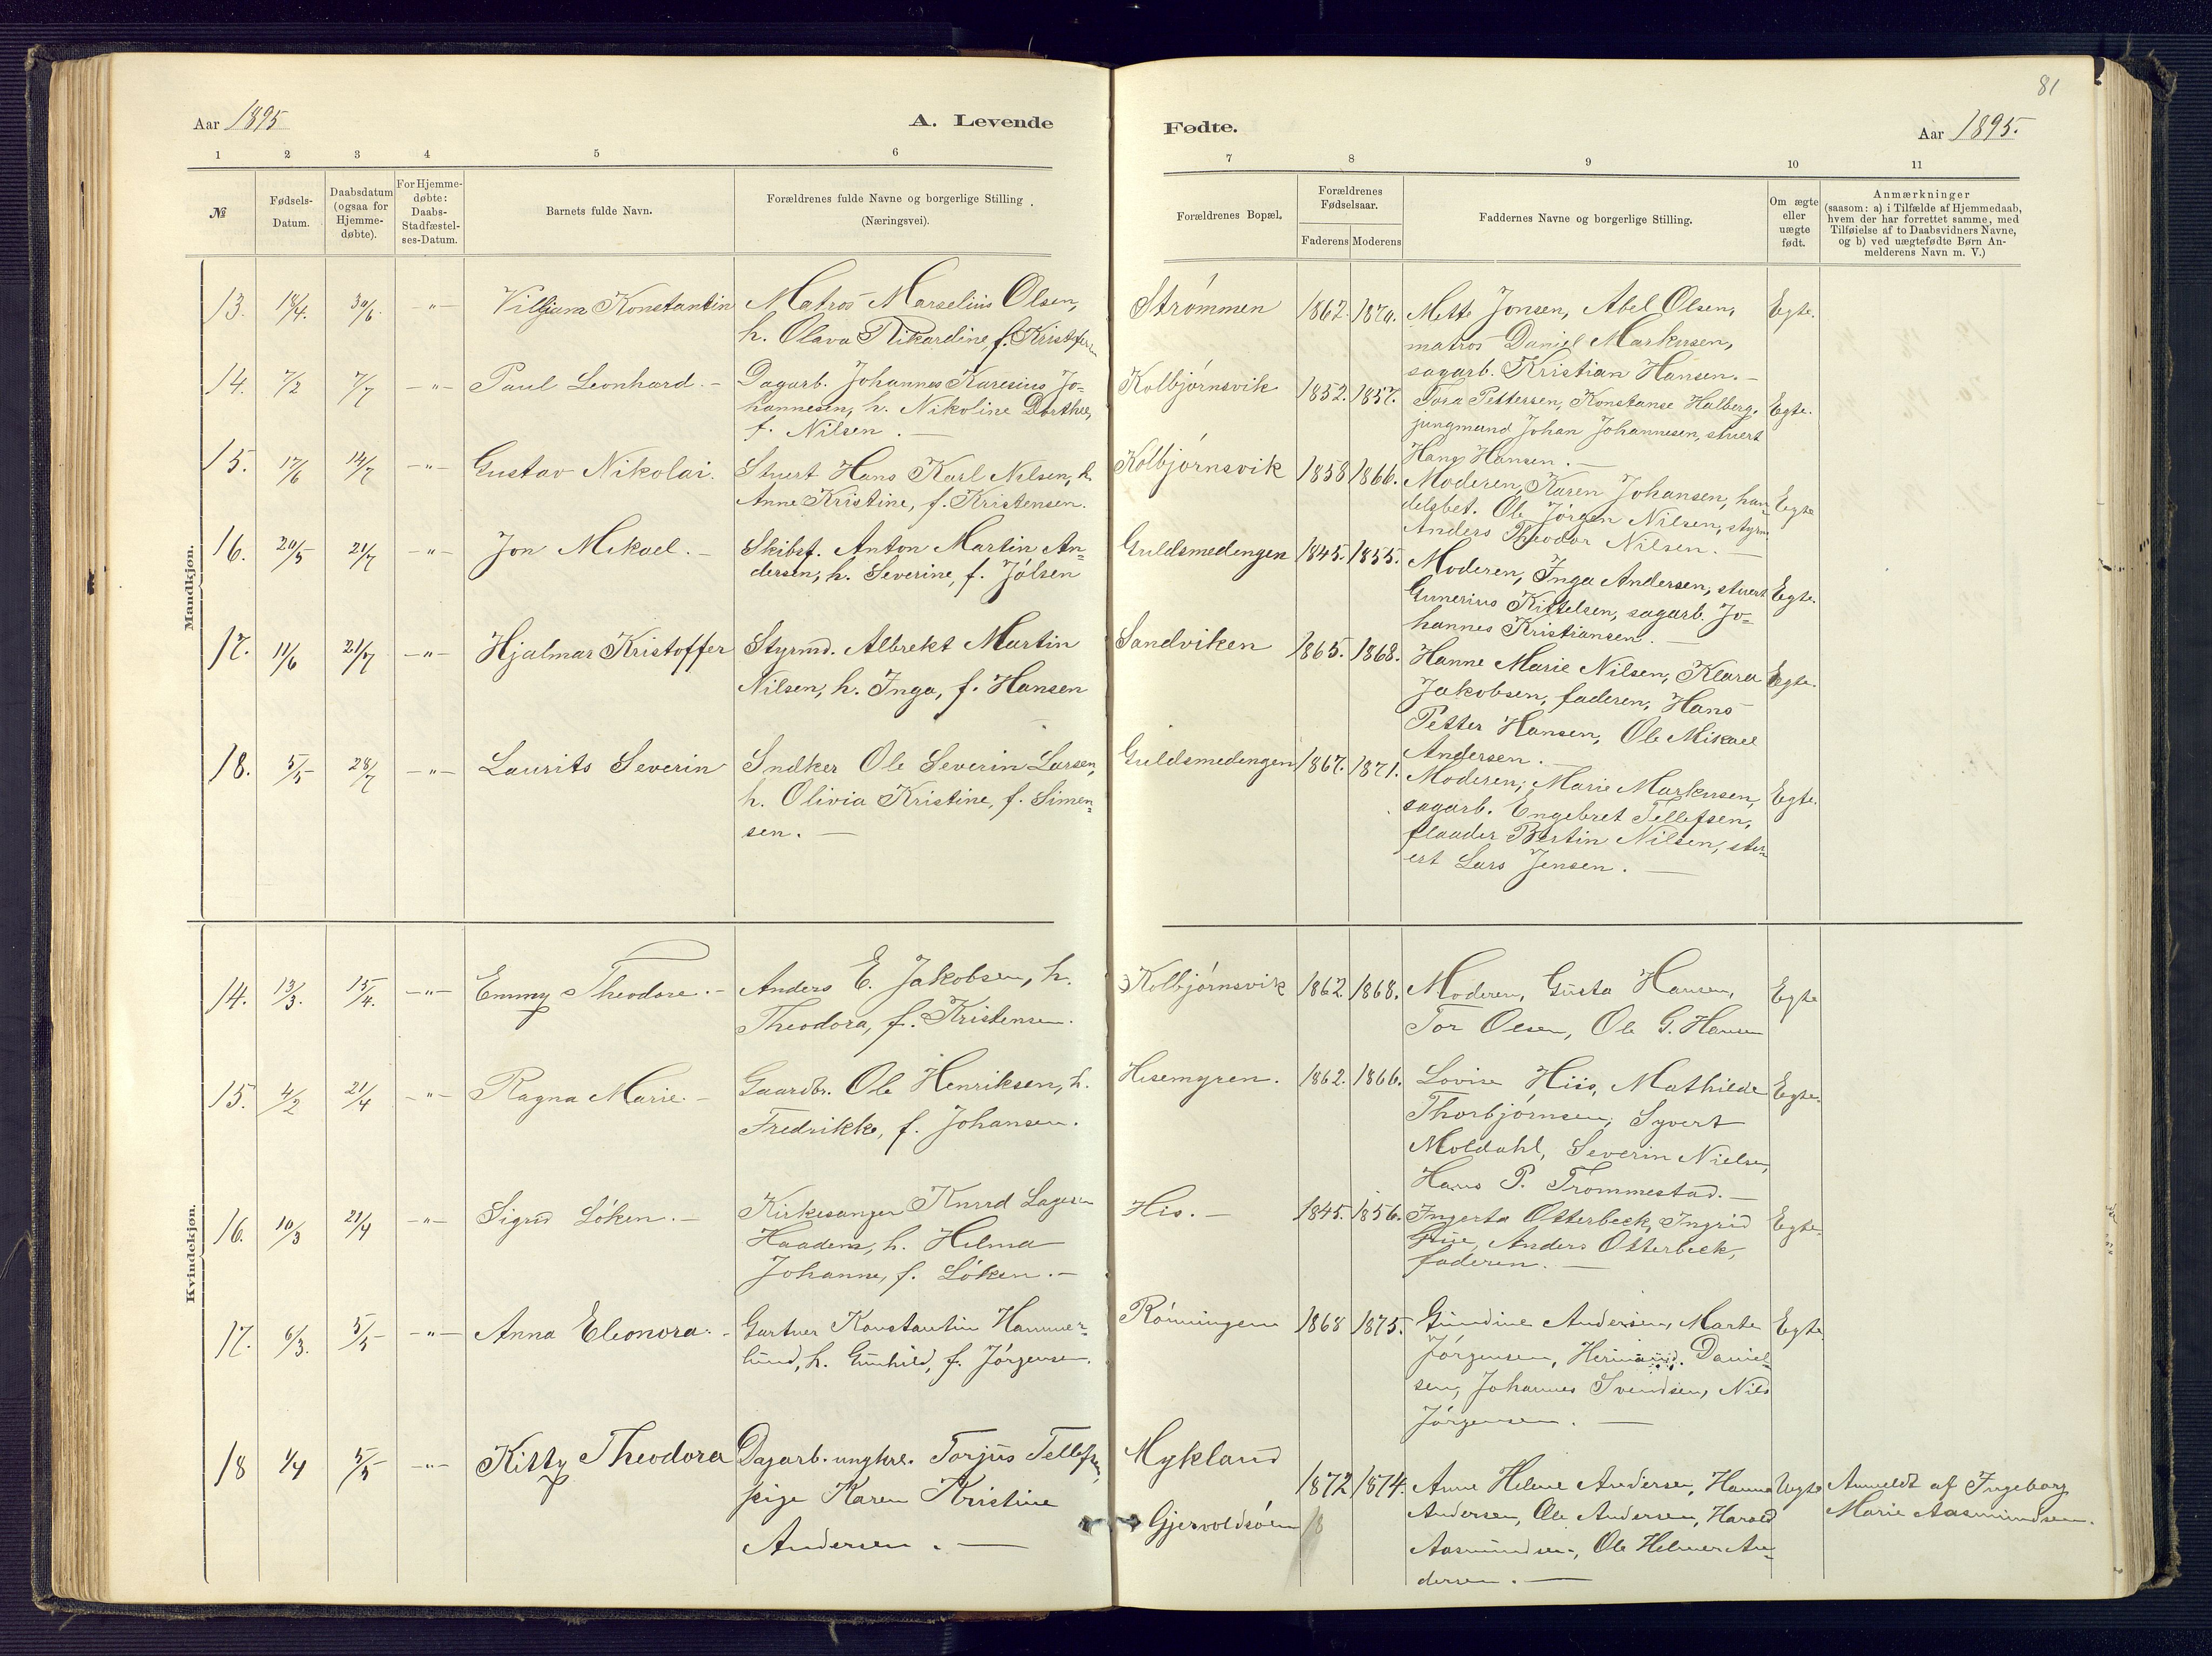 81
Aar 1895
A. Levende
Fødte.
Aar 1895.
1 2 3 4 5 6 7 8 9 10 11
№
Fødsels-
Datum.
Daabsdatum
(ogsaa for
Hjemme-
døbte).
For Hjemme-
døbte:
Daabs-
Stadfæstel-
ses-Datum.
Barnets fulde Navn.
Forældrenes fulde Navne og borgerlige Stilling
(Næringsvei).
Forældrenes Bopæl.
Forældrenes
Fødselsaar.
Faderens Moderens
Faddernes Navne og borgerlige Stilling.
Om ægte
eller
uægte
født.
Anmærkninger
(saasom: a) i Tilfælde af Hjemmedaab,
hvem der har forrettet samme, med
Tilføielse af to Daabsvidners Navne,
og b) ved uægtefødte Børn An-
melderens Navn m. V.)
Mandkjøn.
13. 18/4. 30/6. -"- Viljam Konstantin
Matros Marselius Olsen,
h. Olava Rikardine, f. Kristofersen
Strømmen 1862. 1870.
Mette Jonsen, Abel Olsen,
matros Daniel Markusen,
sagarb. Kristian Hansen. -
Egte.
14. 7/2 7/7 -"- Paul Leonhard. -
Dagarb. Johannes Karesius Jo-
hannesen, h. Nikoline Dorthea,
f. Nilsen. -
Kolbjørnsvik 1852. 1857.
Tora Pettersen, Konstanse Halberg.
jungmand Johan Johannesen, stuert
Hans Hansen. -
Egte.
15. 17/6 14/7 -"- Gustav Nikolai.
Stuert Hans Karl Nilsen, h.
Anne Kristine, f. Kristensen.
Kolbjørnsvik 1858 1866.
Moderen, Karen Johansen, han
delsbet. Ole Jørgen Nilsen, styrm.
Anders Theodor Nilsen. -
Egte
16. 20/5 21/7 -"- Jon Mikael. -
Skibsf. Anton Martin An-
dersen, h. Severine, f. Jølsen
Guldsmedengen 1845. 1855.
Moderen, Inga Andersen, stuert
Gunerius Kittelsen, sagarb. Jo-
hannes Kristiansen. -
Egte.
17. 11/6 21/7 -"- Hjalmar Kristoffer
Styrmd. Albrekt Martin
Nilsen, h. Inga, f. Hansen
Sandviken 1865. 1868.
Hanne Marie Nilsen, Klara
Jakobsen, faderen, Hans
Petter Hansen, Ole Mikael
Andersen. -
Egte.
18. 5/5 28/7 -"- Laurits Severin
Sndker Ole Severin Larsen,
h. Olivia Kristine, f. Simen-
sen. -
Guldsmedengen 1867. 1871.
Moderen, Marie Markusen,
sagarb. Engebret Tellefsen,
flaader Bertin Nilsen, stu-
ert Lars Jensen. -
Egte.
Kvindekjøn.
14. 13/3. 15/4. -"- Emmy Theodore. -
Anders E. Jakobsen, h.
Theodora, f. Kristensen.
Kolbjørnsvik 1862. 1868.
Moderen, Gusta Hansen,
Tor Olsen, Ole G. Hansen
Egte
15. 4/2 21/4 -"- Ragna Marie. -
Gaardbr. Ole Henriksen, h.
Fredrikke, f. Johansen.
Hisemyren. 1862. 1866.
Lovise Hiis, Mathilde
Thorbjørnsen, Syvert
Moldahl, Severin Nielsen,
Hans P. Trommestad. -
Egte.
16. 10/3 21/4 -"- Sigrid Løken. -
Kirkesanger Knud Lagesen
Haadem, h. Helma
Johanne, f. Løken. -
His. - 1845. 1856.
Ingerta Otterbeck, Ingrid
Anders Otterbeck,
faderen. -
Egte.
17. 6/3. 5/5 -"- Anna Eleonora. -
Gartner Konstantin Hammer-
lund, h. Gunhild, f. Jørgensen.
Rønningen 1868 1875.
Gundine Andersen, Marte
Jørgensen, Daniel-
sen, Johannes Svendsen, Nils
Jørgensen. -
Egte.
18 1/4 5/5 -"- Kitty Theodora
Dagarb. ungkrl. Torjus Tellefsen,
pige Karen Kristine
Andersen. -
Mykland
Gjervoldsøen
1872 1874.
Anne Helene Andersen, Hanna
Andersen, Ole Andersen, Harald
Aasmundsen, Ole Helmer An-
dersen. -
Uegte
Anmeldt af Ingeborg
Marie Aasmundsen.